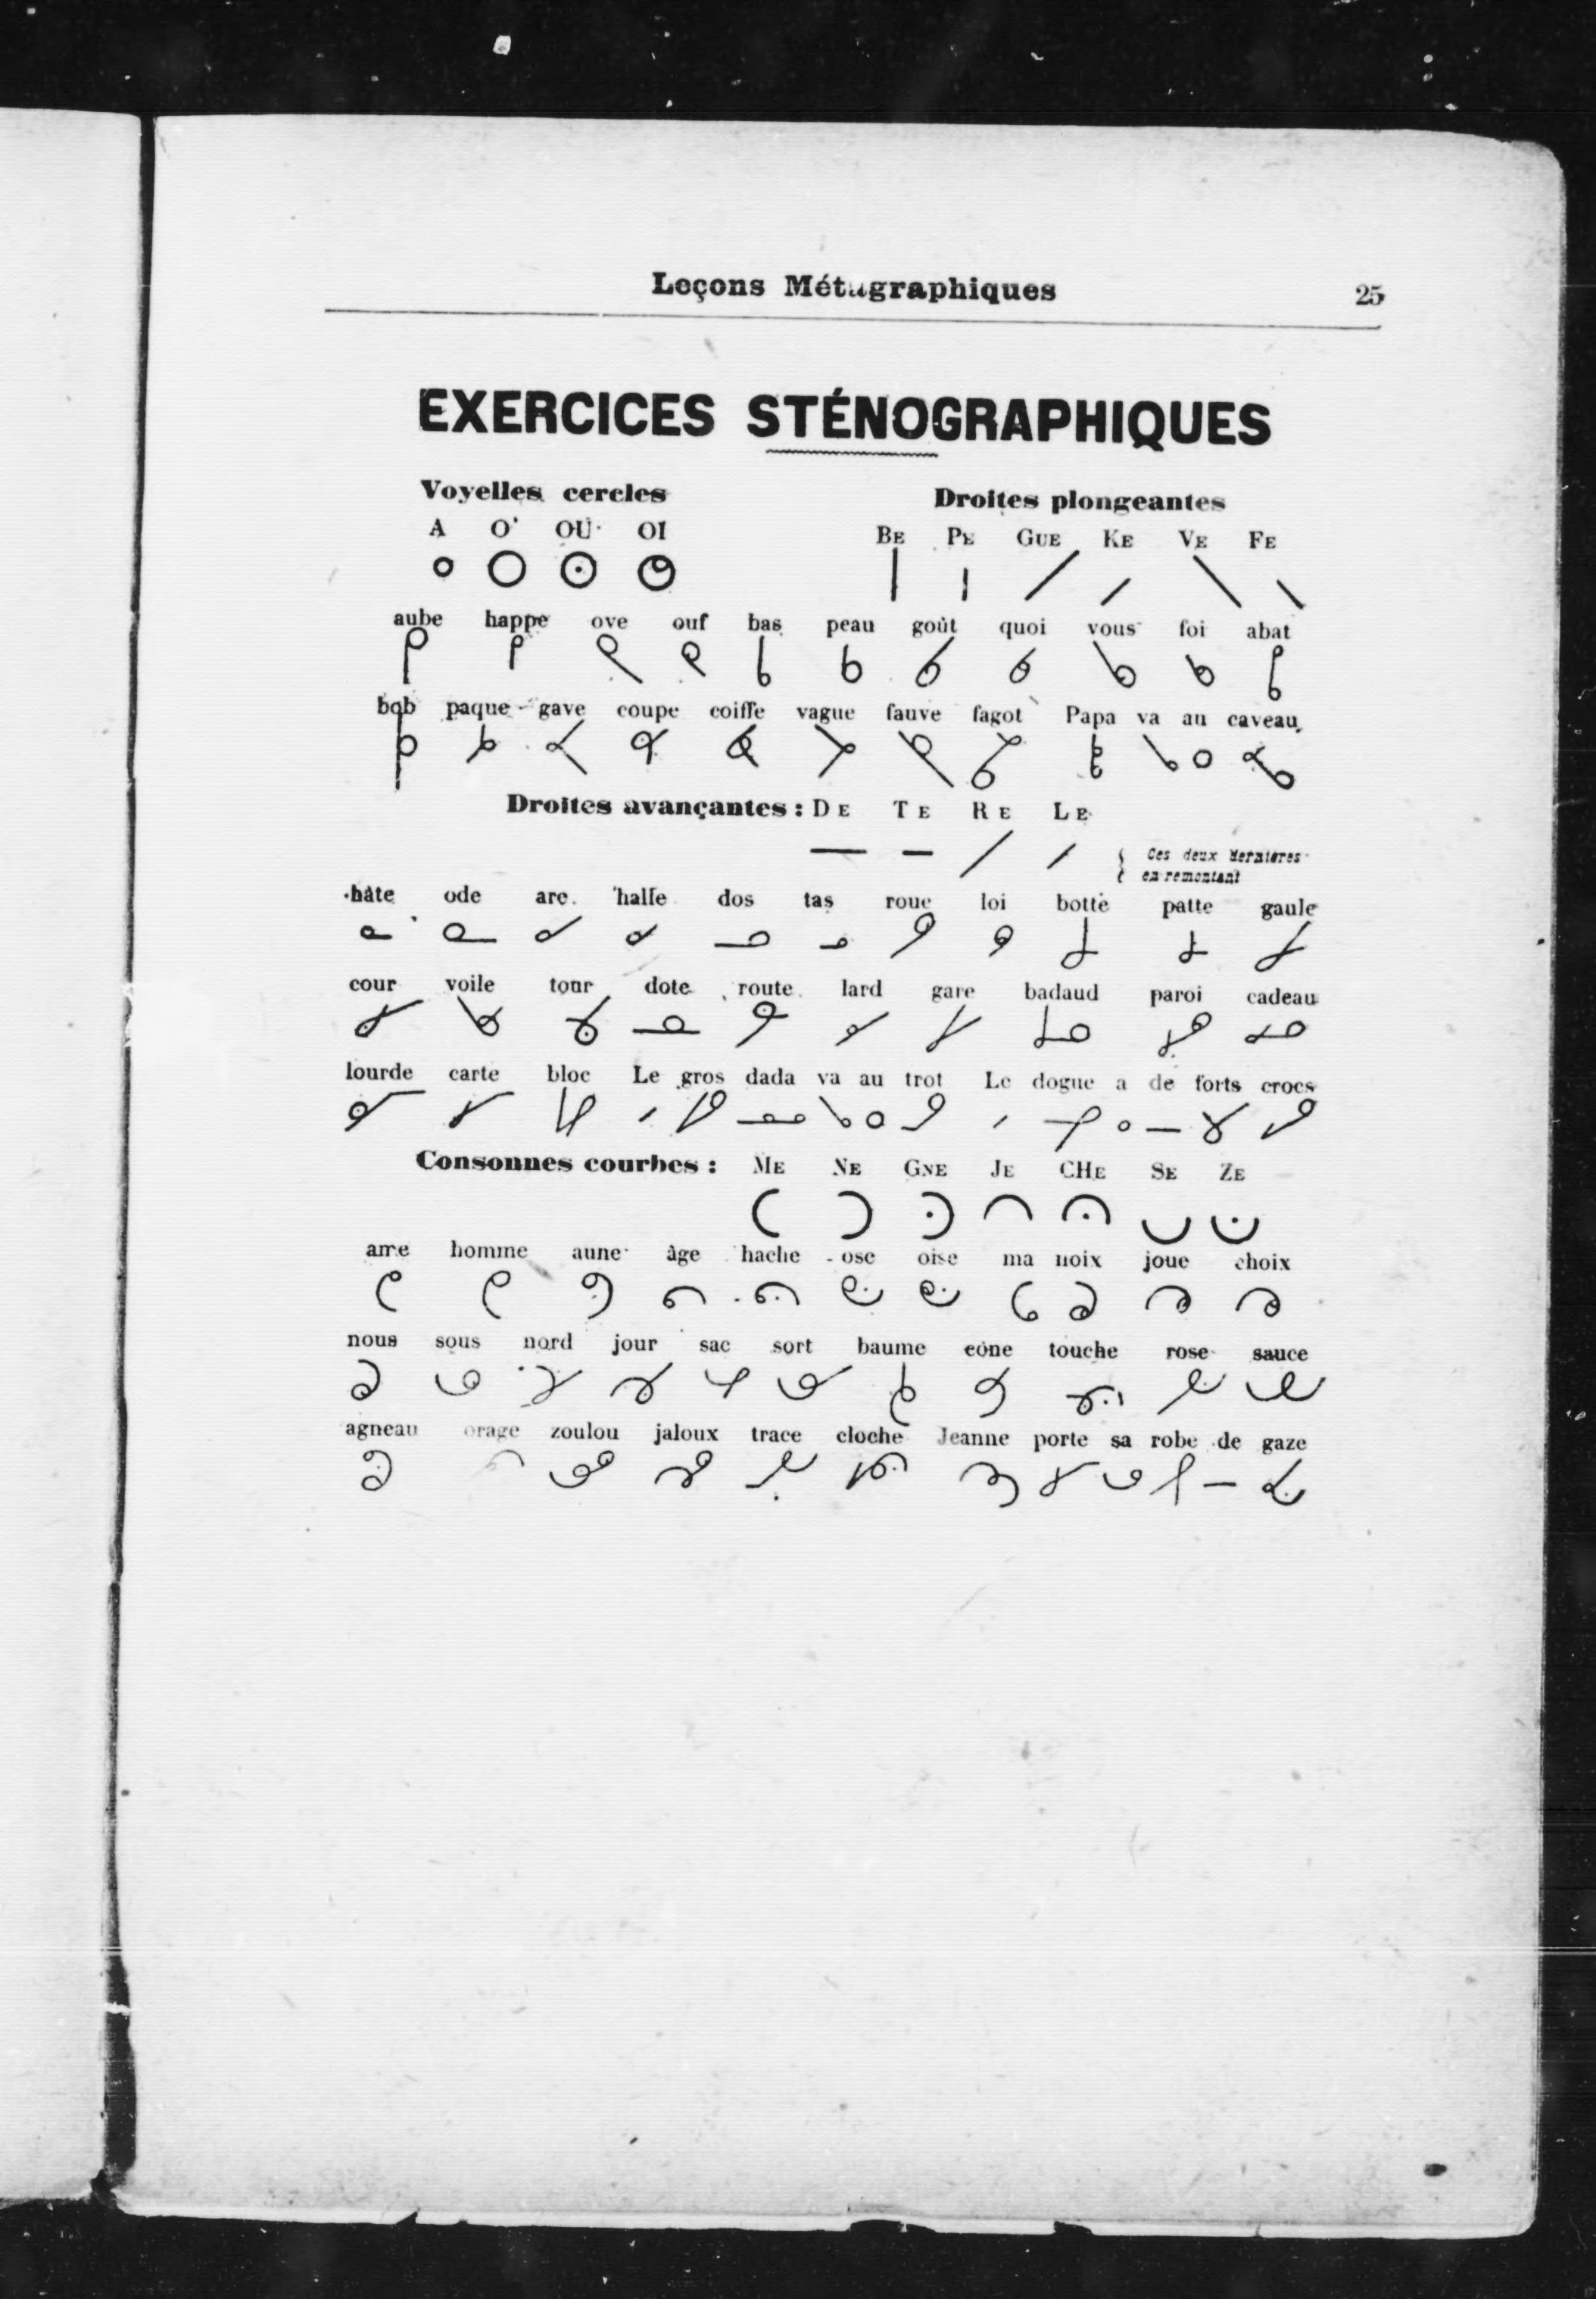 Leçons Métagraphiques 25
EXERCICES STÉNOGRAPHIQUES
Voyelles cercles
A O OU OI
Droites plongeantes
BE PE GUE KE VE FE
aube happe ove ouf bas peau goût quoi vous foi abat
bob paque gave coupe coiffe vague fauve fagot Papa va au caveau
Droites avançantes : DE TE RE LE
Ces deux dernières
en remontant
hâte ode arc halle dos tas roue loi botte patte gaule
cour voile tour dote route lard gare badaud paroi cadeau
lourde carte bloc Le gros dada va au trot Le dogue a de forts crocs
Consonnes courbes : ME NE GNE JE CHE SE ZE
ame homme aune âge hache ose oise ma noix joue choix
nous sous nord jour sac sort baume cône touche rose sauce
agneau orage zoulou jaloux trace cloche Jeanne porte sa robe de gaze